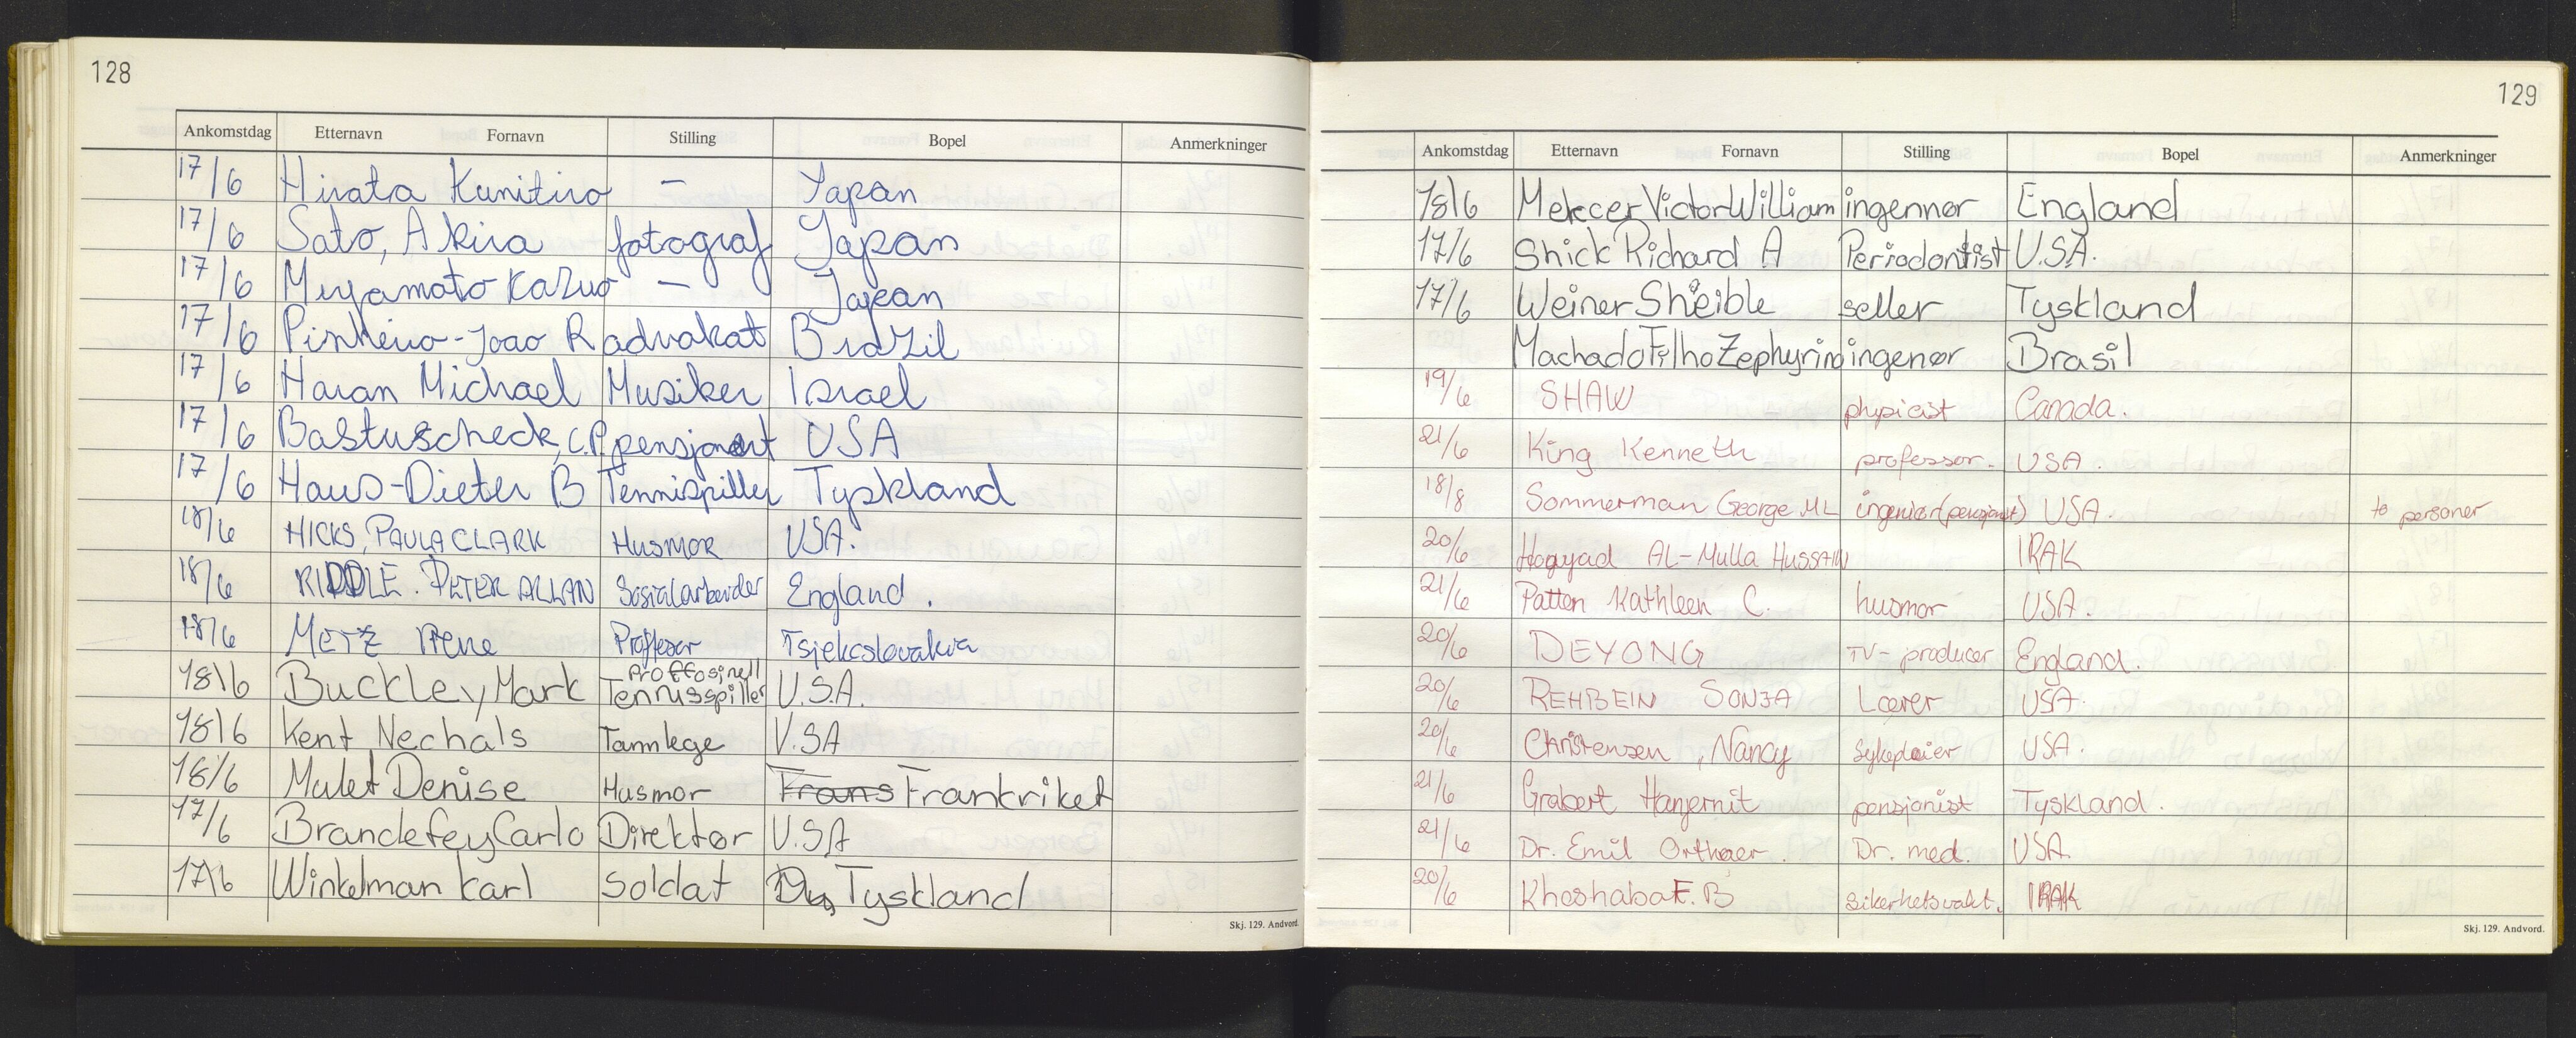 128
Ankomstdag Etternavn Fornavn Stilling Bopel Anmerkninger
17/6 Hirata Kunitiro — Japan
17/6 Sato, Akira fotograf Japan
17/6 Miyamato Kazuo — Japan
17/6 Pinheiro-Joao R advokat Brazil
17/6 Haran Michael Musiker Israel
17/6 Bastuscheck, C.P. pensjonert USA
17/6 Haus-Dieter B Tennispiller Tyskland
18/6 HICKS, PAULA CLARK HUSMOR USA.
18/6 RIDDLE. PETER ALLAN Sosialarbeider England.
18/6 METZ Proffesor Tsjekoslovakia
18/6 Buckley Mark Proffosinell Tennisspiller U.S.A.
18/6 Kent Nechals Tannlege U.SA
18/6 Mulet Denise Husmor Frans Frankriket
17/6 Brandefey Carlo Direktør U.SA
17/6 Winkelman Karl Soldat Tyskland
Skj. 129. Andvord.
129
Ankomstdag Etternavn Fornavn Stilling Bopel Anmerkninger
18/6 Mercer Victor William ingennør England
17/6 Shick Richard A Periodontist U.S.A.
17/6 Weiner Sheible seller Tyskland
Machado Filho Zephyrin ingenør Brasil
19/6 SHAW physicist Canada.
21/6 King Kenneth professor. USA.
18/8 Sommerman George ML ingeniør (pensjonist) USA. to personer
20/6 Hogyad AL-Mulla HUSSAIN IRAK
21/6 Patten Kathleen C. husmor USA.
20/6 DEYONG TV-producer England.
20/6 REHBEIN SONJA Lærer USA.
20/6 Christensen, Nancy Sykepleier USA.
21/6 Grabert Hanjernit pensjonist Tyskland.
21/6 Dr. Emil Orthaer. Dr. med. USA.
20/6 Khoshaba E. B sikerhetsvakt. IRAK
Skj. 129. Andvord.